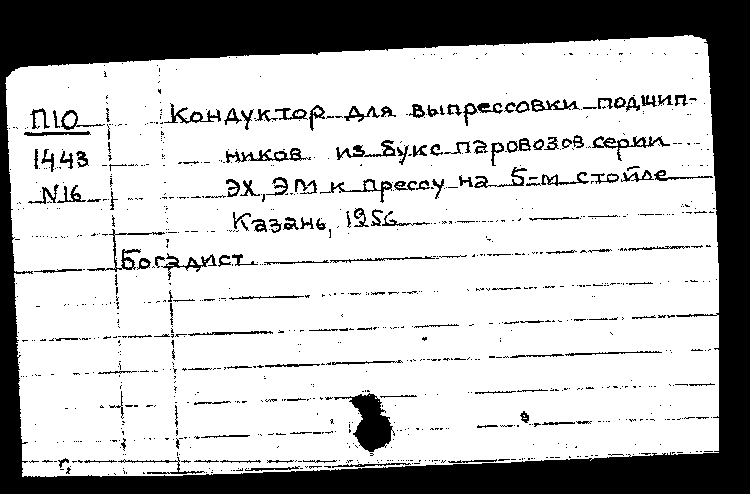 П10
1443
N16
Кондуктор для выпрессовки подшип-
ников из букс паровозов серии
ЭХ, ЭМ к прессу на 5-м стойле
Казань, 1956
Богадист.